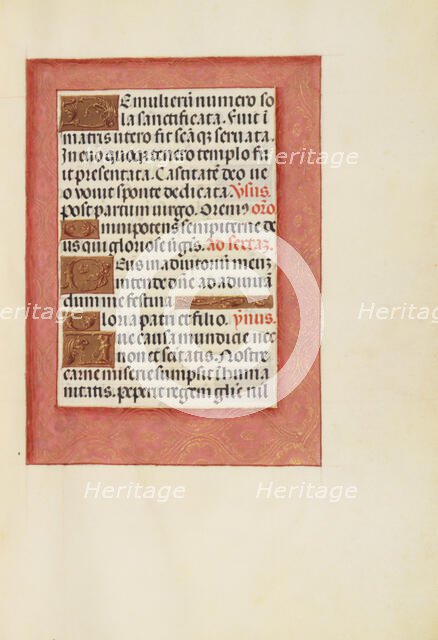 De mulierū numero so
la sanctificata. Fuit ī
matris utero fit seāqꝫ seruata.
In euo quoqꝫ tenero templo fu
it presentata. Castitatē deo uo
uo vouit sponte dedicata. Vsus.
post partum uirgo. Oremꝰ oro.
Omnipotens sempiterne de
us qui gloriose ugis. Ad sextaꝫ.
Deus in adiutoriū meuꝫ
intende dn̄e ad adiuuā
dum me festina
Gloria patri et filio. ynus.
ne causa mundi cie nec
non et scitatis. Nostre
carne misere sumpsit huma
nitatis. peperit regem glīe nil
Heritage
Heritage
Heritage
Heritage
Heritage
Heritage
Heritage